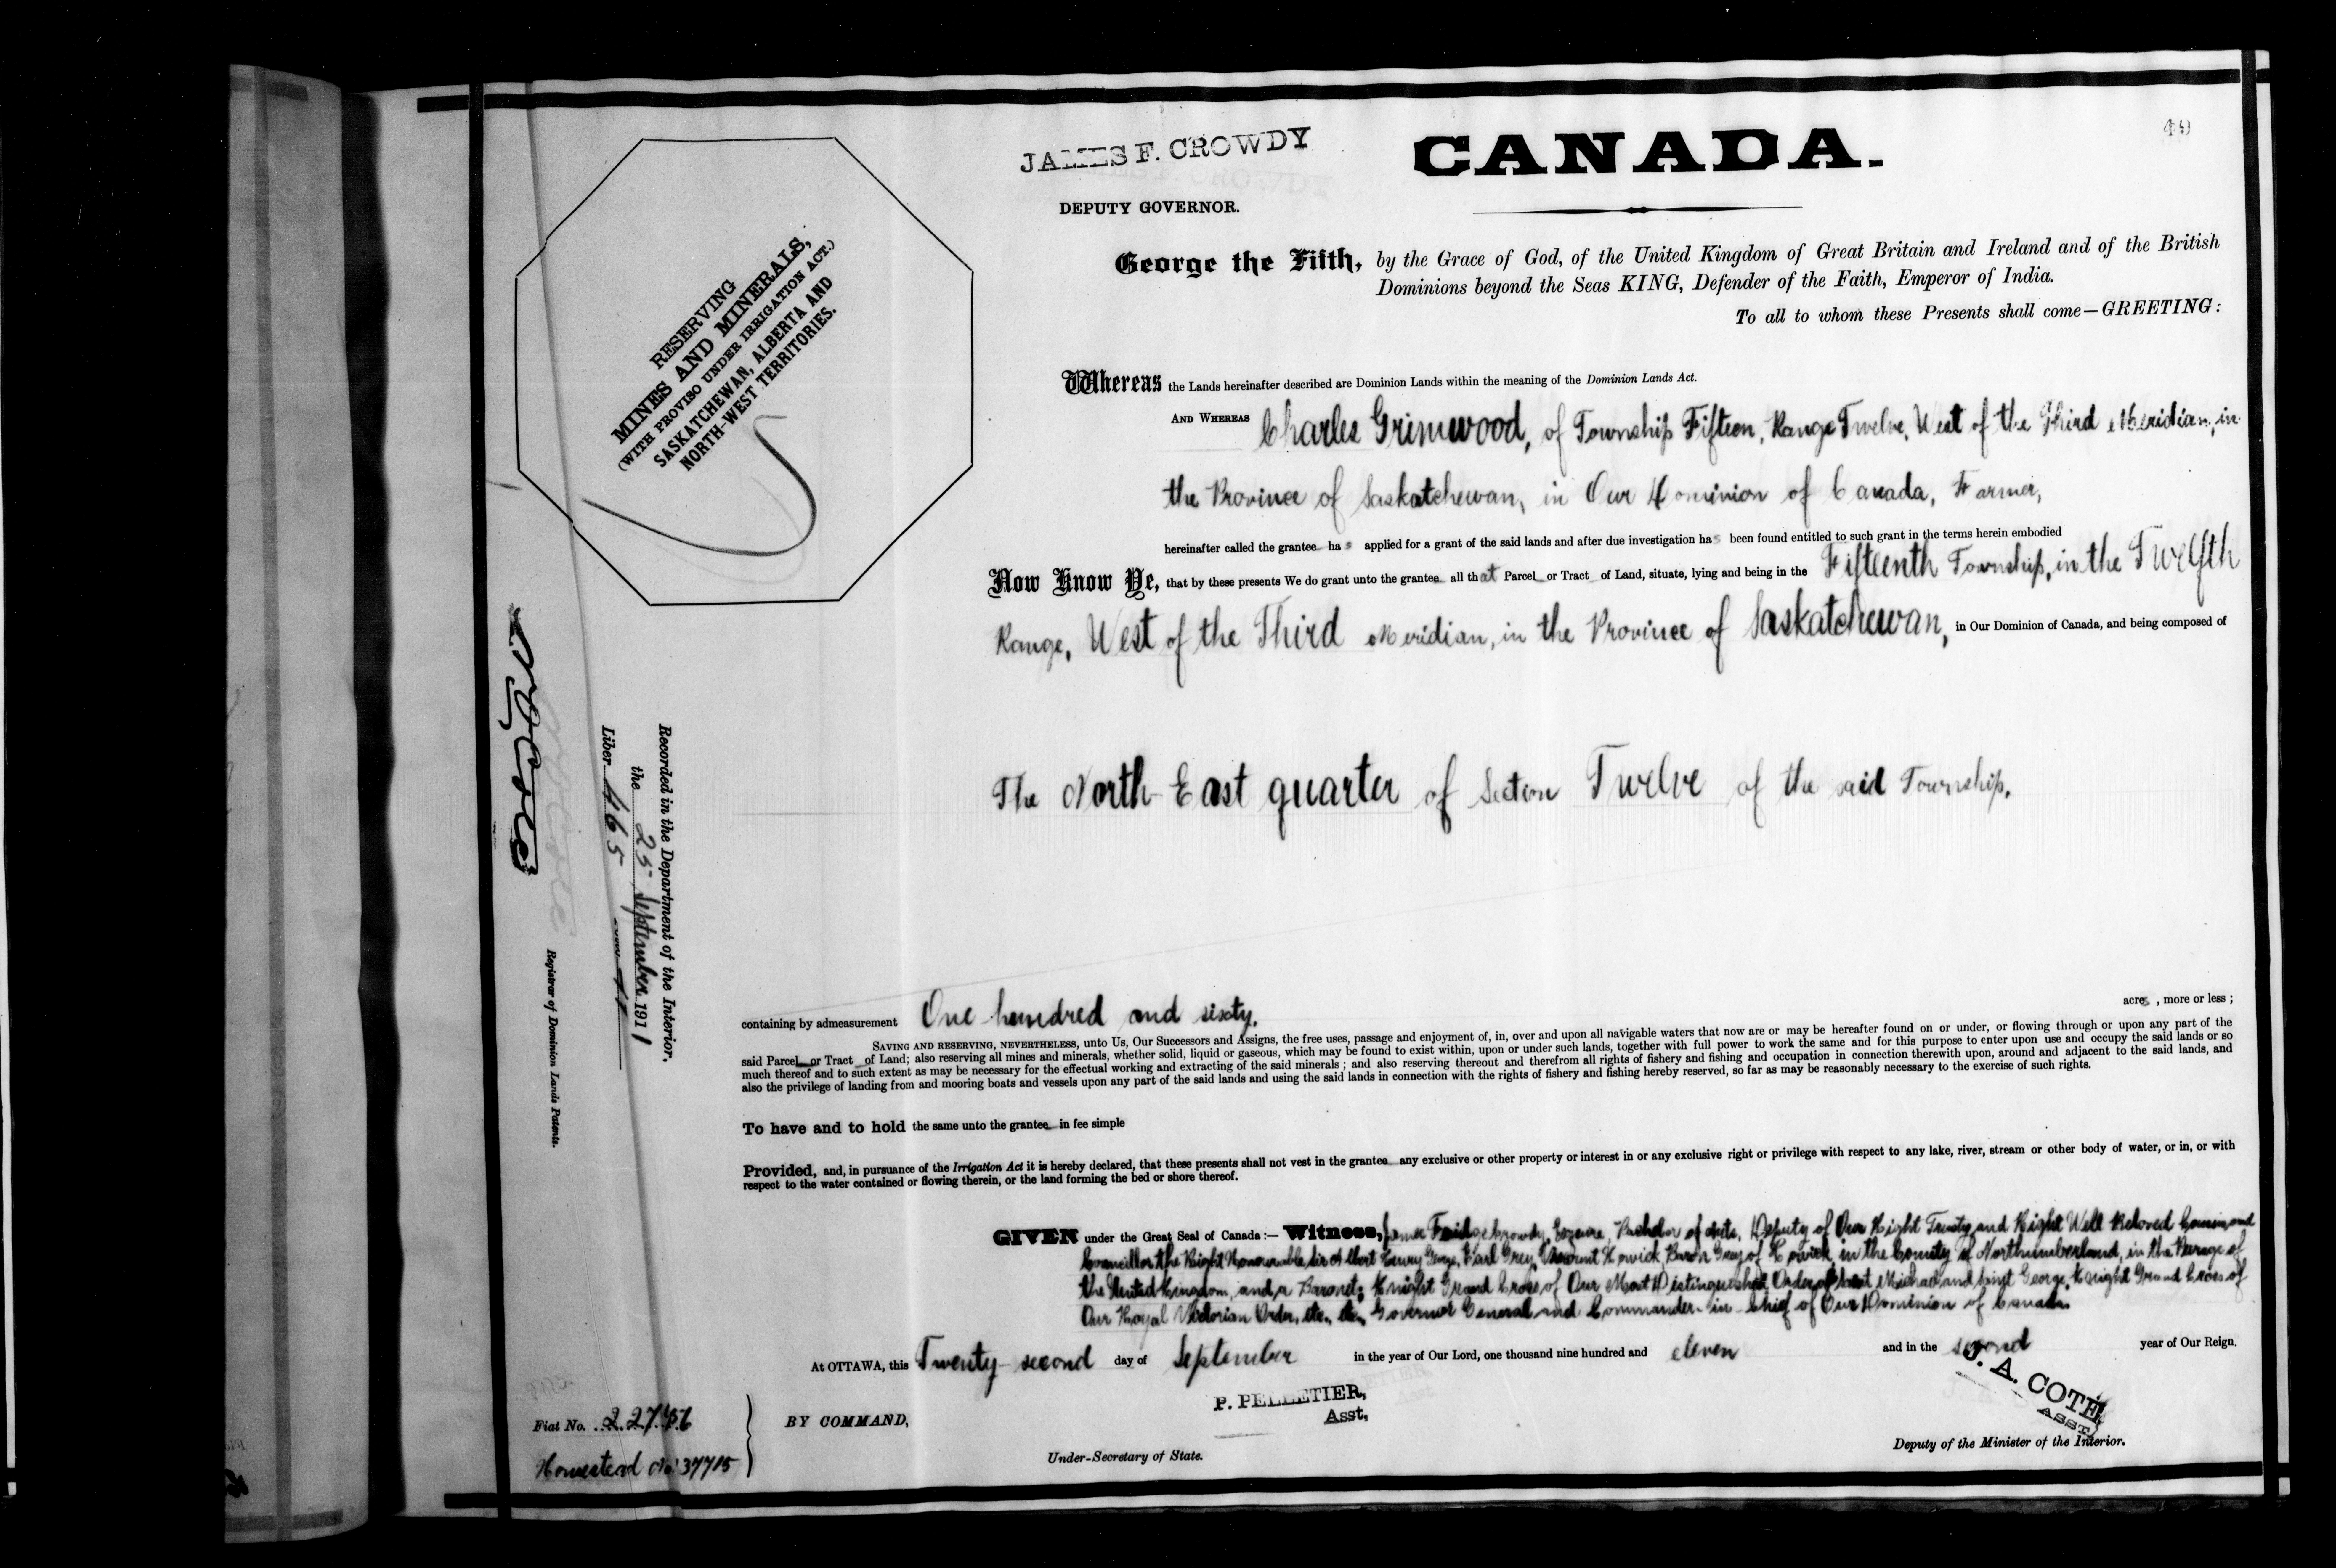 49
JAMES F. CROWDY
DEPUTY GOVERNOR.
CANADA.
George the Fifth, by the Grace of God, of the United Kingdom of Great Britain and Ireland and of the British
Dominions beyond the Seas KING, Defender of the Faith, Emperor of India.
To all to whom these Presents shall come—GREETING:
RESERVING
MINES AND MINERALS,
(WITH PROVISO UNDER IRRIGATION ACT.)
SASKATCHEWAN, ALBERTA AND
NORTH-WEST TERRITORIES.
Whereas the Lands hereinafter described are Dominion Lands within the meaning of the Dominion Lands Act.
AND WHEREAS Charles Grimwood, of Township Fifteen, Range Twelve, West of the Third Meridian, in
the Province of Saskatchewan, in Our Dominion of Canada, Farmer,
hereinafter called the grantee has applied for a grant of the said lands and after due investigation has been found entitled to such grant in the terms herein embodied
Now Know Ye, that by these presents We do grant unto the grantee all that Parcel or Tract of Land, situate, lying and being in the Fifteenth Township, in the Twelfth
Range, West of the Third Meridian, in the Province of Saskatchewan, in Our Dominion of Canada, and being composed of
The North East quarter of Section Twelve of the said Township.
containing by admeasurement One hundred and sixty, acres, more or less;
SAVING AND RESERVING, NEVERTHELESS, unto Us, Our Successors and Assigns, the free uses, passage and enjoyment of, in, over and upon all navigable waters that now are or may be hereafter found on or under, or flowing through or upon any part of the
said Parcel or Tract of Land; also reserving all mines and minerals, whether solid, liquid or gaseous, which may be found to exist within, upon or under such lands, together with full power to work the same and for this purpose to enter upon use and occupy the said lands or so
much thereof and to such extent as may be necessary for the effectual working and extracting of the said minerals; and also reserving thereout and therefrom all rights of fishery and fishing and occupation in connection therewith upon, around and adjacent to the said lands, and
also the privilege of landing from and mooring boats and vessels upon any part of the said lands and using the said lands in connection with the rights of fishery and fishing hereby reserved, so far as may be reasonably necessary to the exercise of such rights.
To have and to hold the same unto the grantee in fee simple
Provided, and, in pursuance of the Irrigation Act it is hereby declared, that these presents shall not vest in the grantee any exclusive or other property or interest in or any exclusive right or privilege with respect to any lake, river, stream or other body of water, or in, or with
respect to the water contained or flowing therein, or the land forming the bed or shore thereof.
GIVEN under the Great Seal of Canada:— Witness, James Crowdy, Esquire, Bachelor of Arts, Deputy of Our Right Trusty and Right Well Beloved Cousin and
Councillor the Right Honourable Sir Albert Henry George, Earl Grey, Viscount Howick, Baron Grey of Howick, in the County of Northumberland, in the Peerage of
the United Kingdom, and a Baronet; Knight Grand Cross of Our Most Distinguished Order of Saint Michael and Saint George, Knight Grand Cross of
Our Royal Victorian Order, etc., etc., Governor General and Commander-in-Chief of Our Dominion of Canada.
At OTTAWA, this Twenty-second day of September in the year of Our Lord, one thousand nine hundred and eleven and in the second year of Our Reign.
BY COMMAND,
P. PELLETIER,
Asst.
Under-Secretary of State.
J. A. COTÉ
ASST.
Deputy of the Minister of the Interior.
Recorded in the Department of the Interior.
the 25 September 1911
Liber 465
N. O. Coté
Registrar of Dominion Lands Patents.
Fiat No. 227456
Homestead No. 37715